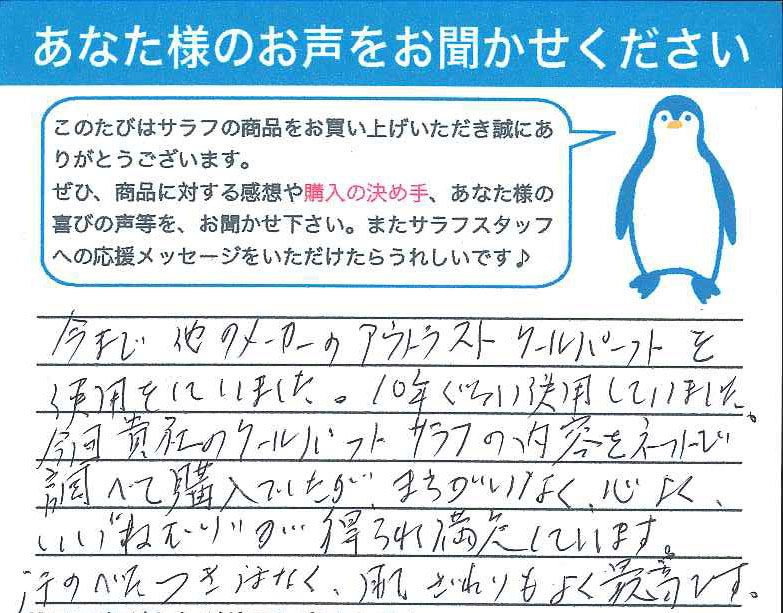 あなた様のお声をお聞かせください
このたびはサラフの商品をお買い上げいただき誠にあ
りがとうございます。
ぜひ、商品に対する感想や購入の決め手、あなた様の
喜びの声等を、お聞かせ下さい。またサラフスタッフ
への応援メッセージをいただけたらうれしいです♪
今まで他のメーカーのアウトラストクールパーフトを
使用をしていました。10年ぐらい使用していました。
今回貴社のクールパフトサラフの内容をネットで
調べて購入でしたが、まちがいなく、心よく、
いいねむりが得られ満足しています。
汗のべたつきはなく、肌ざわりもよく最高です。